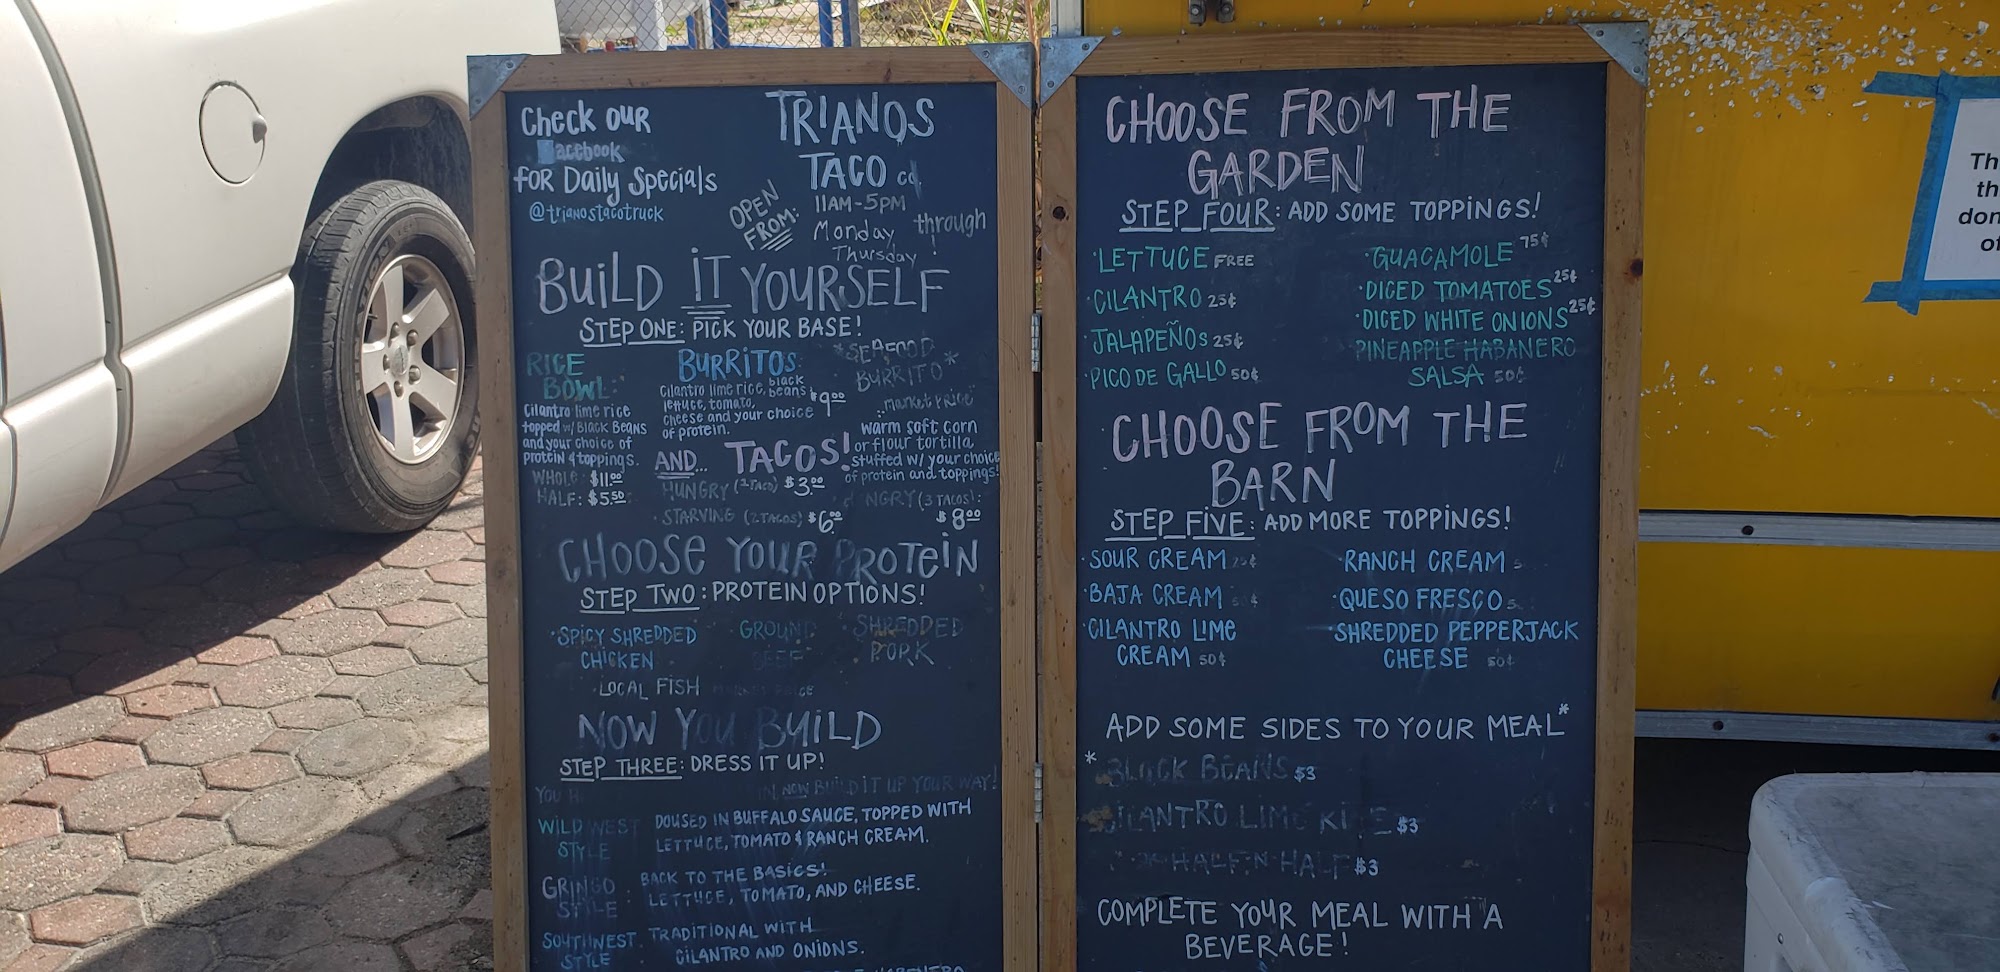 Check our
acebook
for Daily Specials
@trianostacotruck
TRIANOS
TACO co.
OPEN
FROM:
11AM-5PM
Monday through
Thursday
BUILD IT YOURSELF
STEP ONE: PICK YOUR BASE!
RICE
BOWL:
Cilantro lime rice
topped w/ Black Beans
and your choice of
protein & toppings.
WHOLE: $11.00
HALF: $5.50
BURRITOS:
Cilantro lime rice, black beans
lettuce, tomato,
cheese and your choice
of protein.
$9.00
*SEAFOOD
BURRITO*
market price
AND... TACOS!
warm soft corn
or flour tortilla
stuffed w/ your choice
of protein and toppings!
HUNGRY (1 TACO) $3.00
STARVING (2 TACOS) $6.00
NGRY (3 TACOS):
$8.00
CHOOSE YOUR PROTEIN
STEP TWO: PROTEIN OPTIONS!
·SPICY SHREDDED
CHICKEN
GROUND
BEEF
SHREDDED
PORK
·LOCAL FISH MARKET PRICE
NOW YOU BUILD
STEP THREE: DRESS IT UP!
YOU NOW BUILD IT UP YOUR WAY!
WILD WEST
STYLE
DOUSED IN BUFFALO SAUCE, TOPPED WITH
LETTUCE, TOMATO & RANCH CREAM.
GRINGO
STYLE
: BACK TO THE BASICS!
LETTUCE, TOMATO, AND CHEESE.
SOUTHWEST
STYLE
. TRADITIONAL WITH
CILANTRO AND ONIONS.
HABENERO
CHOOSE FROM THE
GARDEN
STEP FOUR: ADD SOME TOPPINGS!
·LETTUCE FREE
·CILANTRO 25¢
·JALAPEÑOS 25¢
·PICO DE GALLO 50¢
·GUACAMOLE 75¢
·DICED TOMATOES 25¢
·DICED WHITE ONIONS 25¢
PINEAPPLE HABANERO
SALSA 50¢
CHOOSE FROM THE
BARN
STEP FIVE: ADD MORE TOPPINGS!
·SOUR CREAM 25¢
·BAJA CREAM 50¢
·CILANTRO LIME
CREAM 50¢
·RANCH CREAM
·QUESO FRESCO
·SHREDDED PEPPERJACK
CHEESE 50¢
ADD SOME SIDES TO YOUR MEAL*
* BLACK BEANS $3
CILANTRO LIME RICE $3
HALF-N-HALF $3
COMPLETE YOUR MEAL WITH A
BEVERAGE!
Th
th
don
of